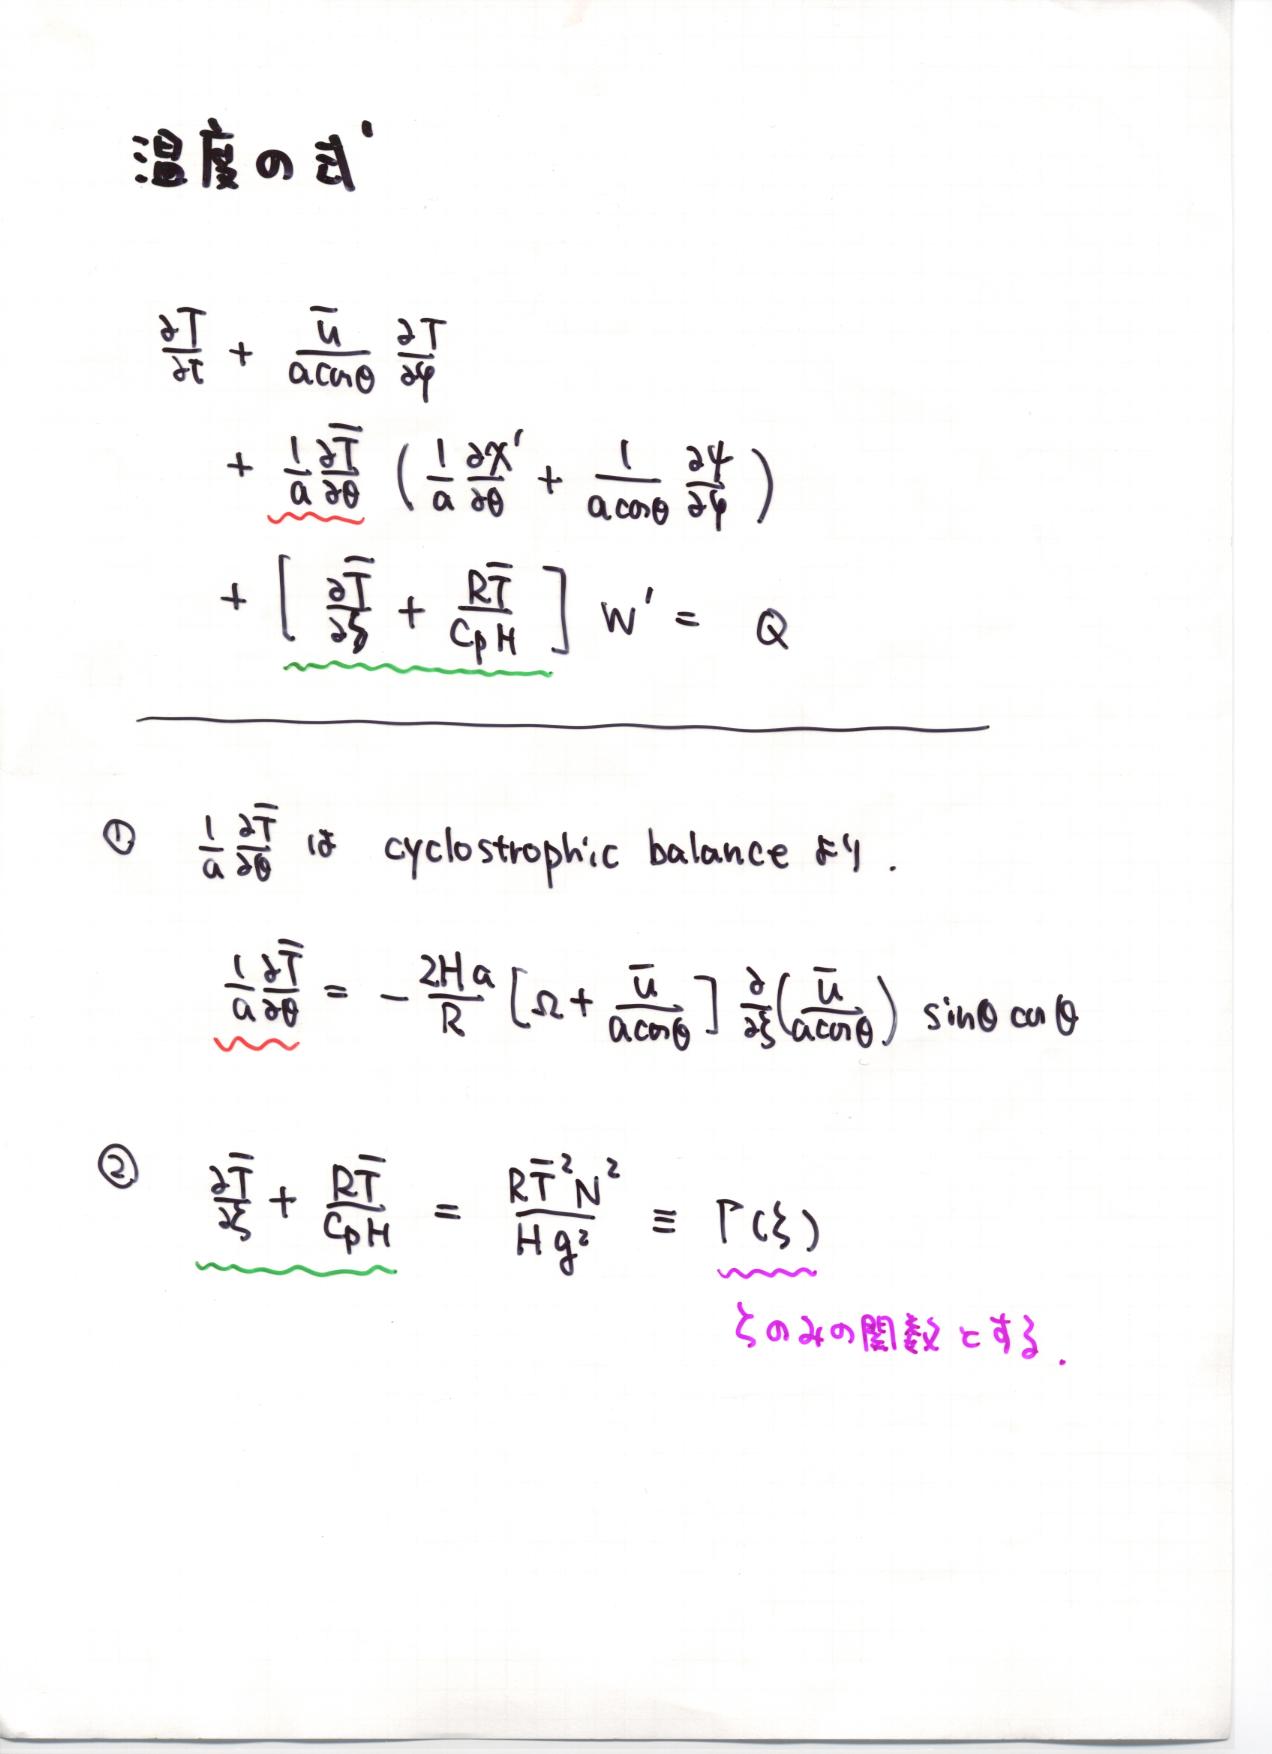 温度の式
∂T/∂t + ū/(a cosθ) ∂T/∂φ
+ 1/a ∂T̄/∂θ ( 1/a ∂χ'/∂θ + 1/(a cosθ) ∂ψ/∂φ )
+ [ ∂T̄/∂ξ + RT̄/(CpH) ] W' = Q
① 1/a ∂T̄/∂θ は cyclostrophic balance より.
1/a ∂T̄/∂θ = - 2Ha/R [Ω + ū/(a cosθ)] ∂/∂ξ (ū/(a cosθ)) sinθ cosθ
② ∂T̄/∂ξ + RT̄/(CpH) = RT̄²N²/(Hg²) ≡ Γ(ξ)
ξのみの関数とする.